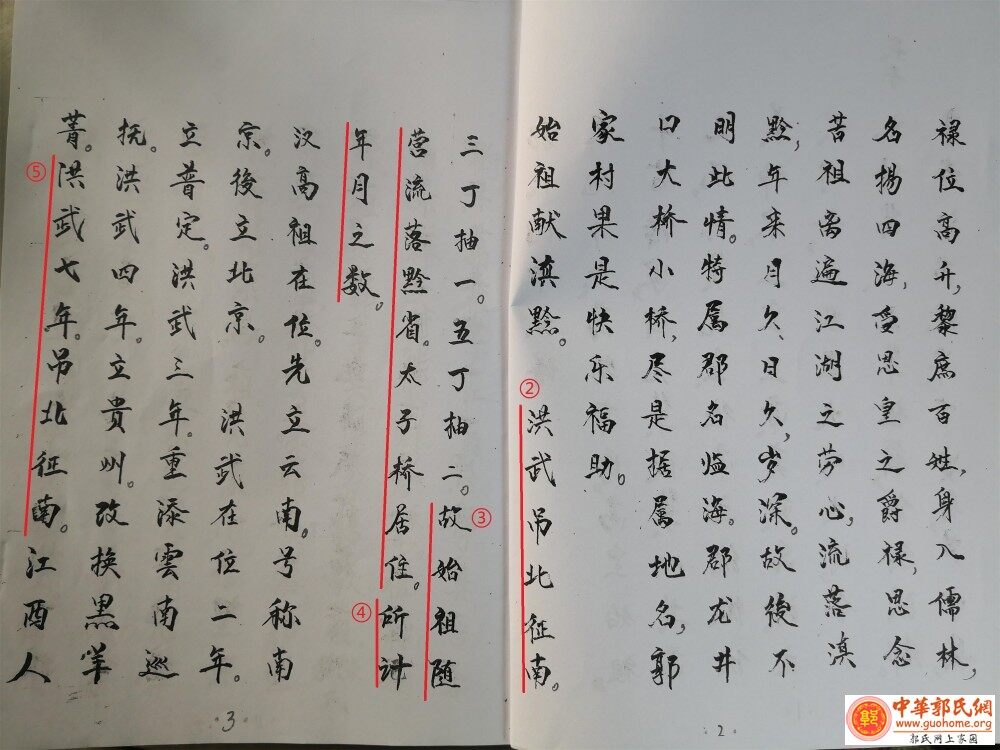 禄位高升，黎庶百姓，身入儒林，
名揚四海，受恩皇之爵禄，思念
苦祖离遍江湖之劳心，流落滇
黔，年来月久、日久，岁深。故後不
明此情。特属郡名临海。郡龙井
口大桥小桥，尽是据属地名，郭
家村果是快乐福助。
始祖献滇黔。②洪武吊北征南。
·2·
三丁抽一。五丁抽二。③故始祖随
营流落黔省。太子桥居住。④所讲
年月之数。
汉高祖在位。先立云南。号称南
京。後立北京。洪武在位二年。
立普定。洪武三年。重添雲南巡
抚。洪武四年。立貴州。改换黑羊
菁。⑤洪武七年。吊北征南。江酉人
·3·
中華郭氏網
www.guohome.org
郭氏网上家园